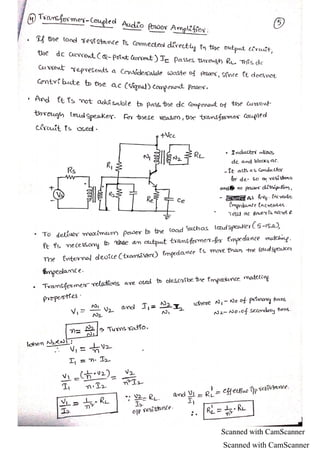 ④ Transformer-Coupled Audio Power Amplifier:
⑤
• If the load resistance is connected directly in the output circuit,
the dc current (Q-point current) Ic passes through RL. This dc
current represents a considerable waste of power, since it does not
contribute to the ac (signal) component power.
• And it is not advisable to pass the dc component of the current
through loudspeaker. For these reason, the transformer coupled
circuit is used.
+Vcc
R1
N1
N2
RL
Rs
Vs
R2
RE
CE
• Inductor allows
dc and blocks ac.
- It acts as conductor
for dc. so no resistance
and no power dissipation,
impedance increases
• To deliver maximum power to the load such as loudspeaker (5-15Ω),
it is necessary to use an output transformer for impedance matching.
The internal device (transistor) impedance is more than the loudspeaker
impedance.
• Transformer relations are used to describe the impedance matching
properties.
V1 = N1/N2 V2 and I1 = N2/N1 I2 where N1 - No of primary turns
N2 - No. of secondary turns
n = N2/N1 → Turns ratio.
∴ V1 = 1/n V2
I1 = n · I2
V1/I1 = (1/n · V2)/(n · I2) = V2/(n² I2)
V1/I1 = 1/n² · RL
∵ V2/I2 = RL
o/p resistance
and V1/I1 = RL' = effective i/p resistance.
∴ RL' = 1/n² · RL
Scanned with CamScanner
Scanned with CamScanner